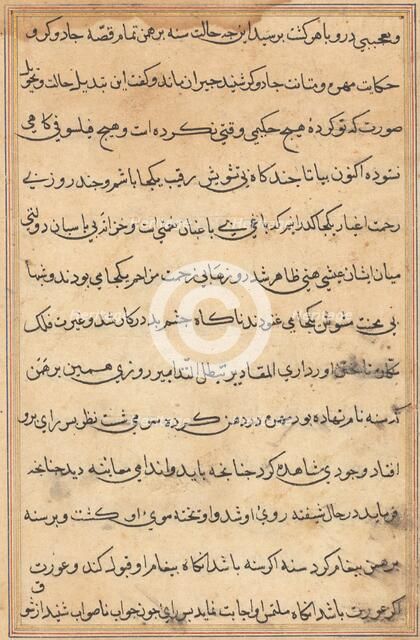 و عجبی درو ظاهر گشت پرسید این چه حالت سنه برهمن تمام قصه جادوگر و
حکایت مهره و متانت جادوگر شنید حیران بماند و گفت این تبدیل حالت و تحویل
صورت که تو کردهٔ هیچ حکیمی وقتی نکرده است و هیچ فیلسوفی کاهی
ننموده اکنون بیا تا چند گاه بی تشویش رقیب یکجا باشم و چند روز بی
زحمت اغیار یکجا گذرانیم که باغی بی باغبان و خزانه بی پاسبان دولتی
میان ایشان عیشی هنی ظاهر شد روزها بی زحمت مزاحم یکجا می بودند و شبها
بی محنت مشوش یکجا می غنودند ناگاه چشم بد در کار شد و غیرت فلک
المقادیر تبطل التدابیر روزی همین برهمن
که سنه نام نهاده بود مهره در دهن کرده می شست نظر پسر رای برو
افتاد وجودی مشاهده کرد چنانچه باید و اندامی معاینه دید چنانچه
فرماید در حال شیفته روی او شد و آوتخته موی او گشت و بر سنه
برهمن پیغام کرد سنه اگر سنه باشد آنگاه پیغام او قبول کند و عورت
اگر عورت باشد آنگاه ملتمس او اجابت نماید پسر رای چون جواب ناصواب شنید از